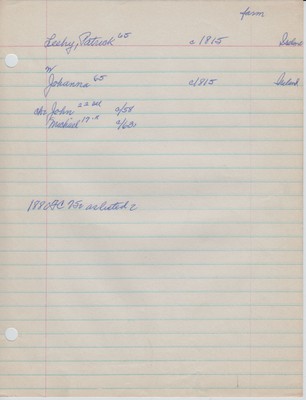 farm
Leahy, Patrick 65 c1815 Ireland
w
Johanna 65 c1815 Ireland
chs John 22 c/58
Michael 17 c/63
1880 FC 75c as listed